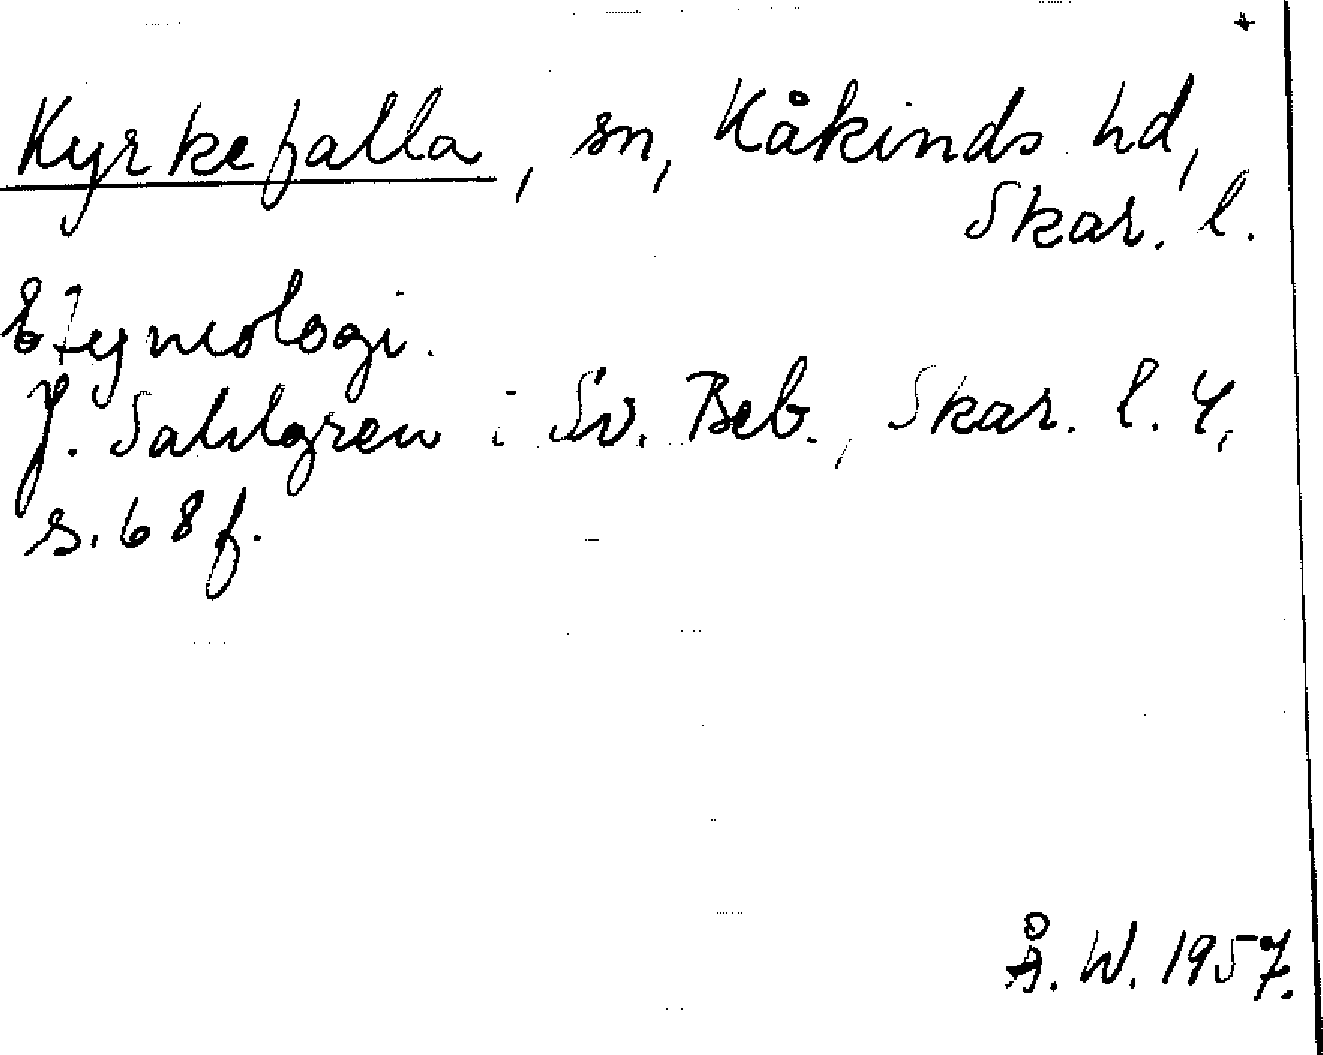 +
Kyrkefalla, sn, Kåkinds hd,
Skar. l.
Etymologi.
J. Sahlgren i Sv. Beb., Skar. l. 4,
s. 68 f.
Å. W. 1957.